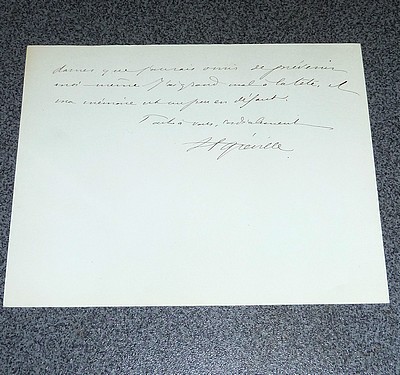 dames que j'aurais omis de prévenir
moi-même. J'ai grand mal à la tête, et
ma mémoire est un peu en défaut.
Toute à vous, cordialement
H Gréville